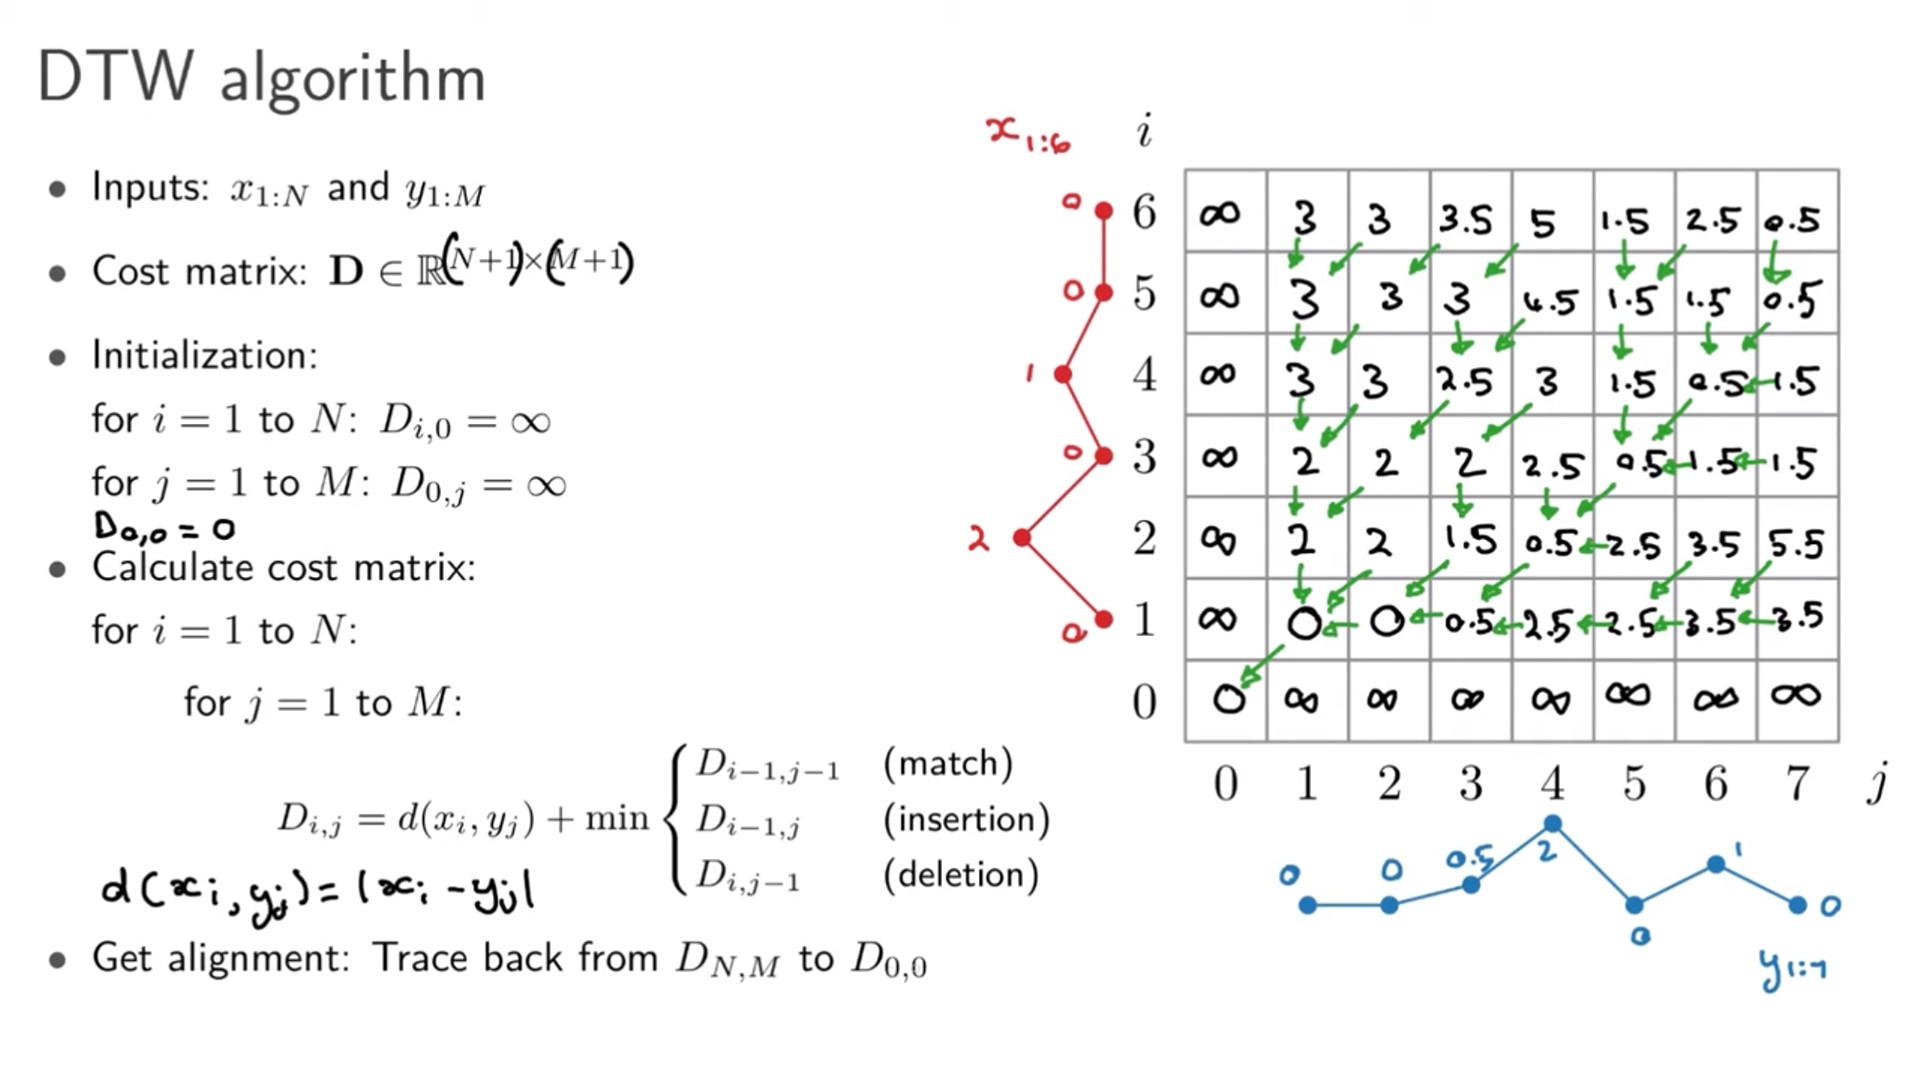 DTW algorithm
• Inputs: x_{1:N} and y_{1:M}
• Cost matrix: D ∈ ℝ^{(N+1)×(M+1)}
• Initialization:
for i = 1 to N: D_{i,0} = ∞
for j = 1 to M: D_{0,j} = ∞
D_{0,0} = 0
• Calculate cost matrix:
for i = 1 to N:
for j = 1 to M:
D_{i,j} = d(x_i, y_j) + min { D_{i−1,j−1} (match)
D_{i−1,j} (insertion)
D_{i,j−1} (deletion)
d(x_i, y_j) = |x_i - y_j|
• Get alignment: Trace back from D_{N,M} to D_{0,0}
x_{1:6} i
0 6 ∞ 3 3 3.5 5 1.5 2.5 0.5
0 5 ∞ 3 3 3 4.5 1.5 1.5 0.5
1 4 ∞ 3 3 2.5 3 1.5 0.5 1.5
0 3 ∞ 2 2 2 2.5 0.5 1.5 1.5
2 2 ∞ 2 2 1.5 0.5 2.5 3.5 5.5
0 1 ∞ 0 0 0.5 2.5 2.5 3.5 3.5
0 0 ∞ ∞ ∞ ∞ ∞ ∞ ∞
0 1 2 3 4 5 6 7 j
0 0 0.5 2 0 1 0
y_{1:7}